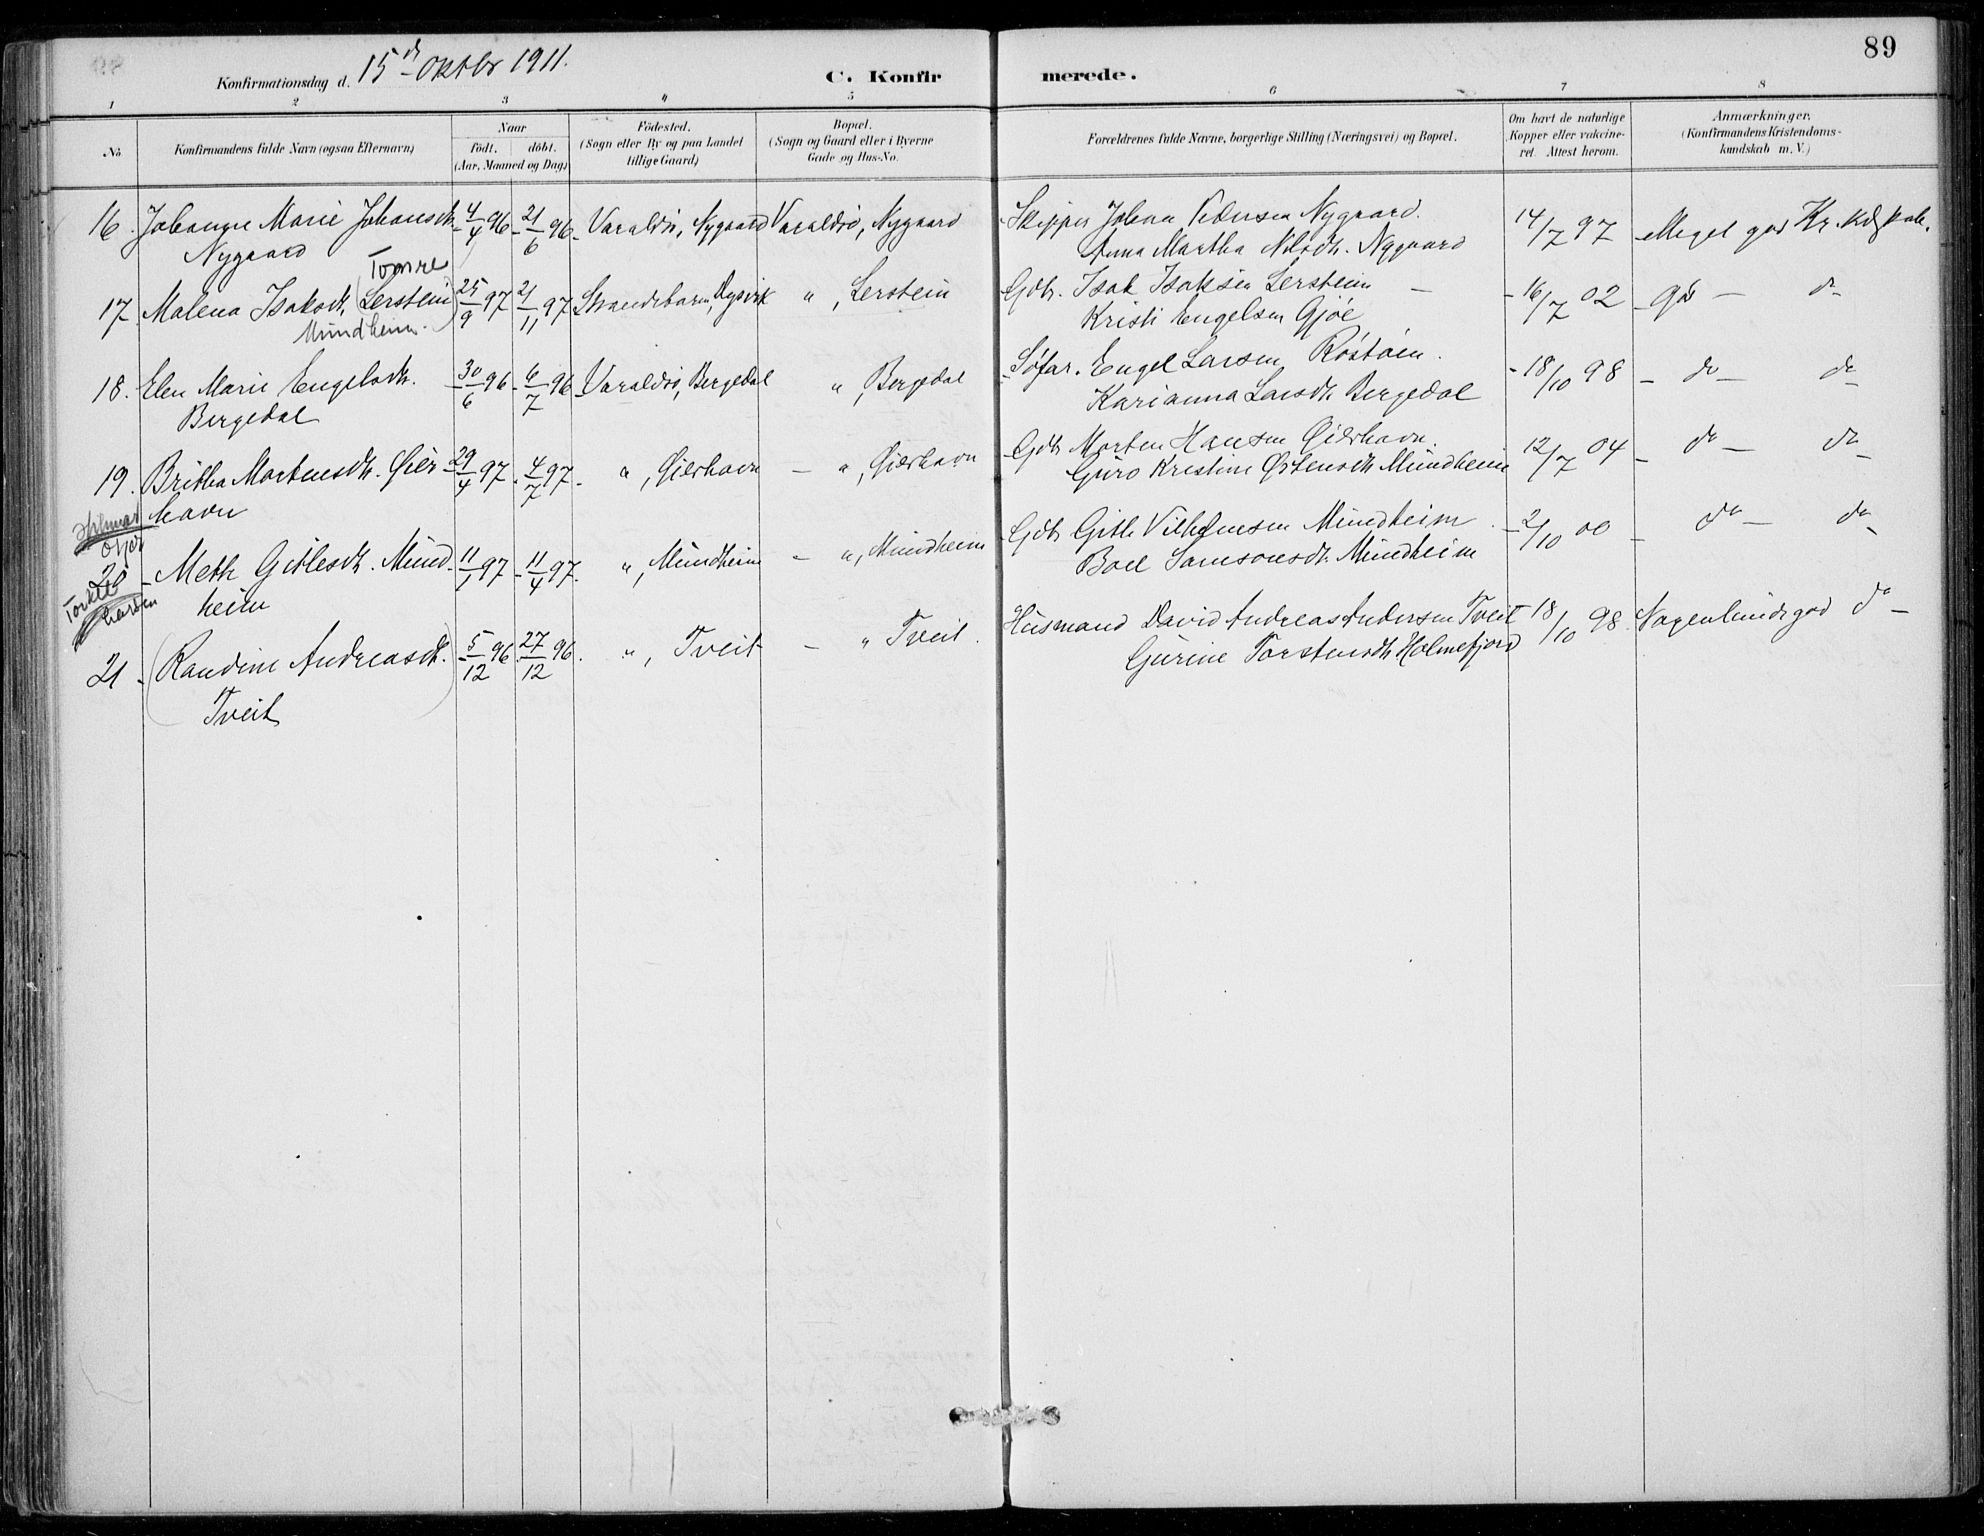 89
Konfirmationsdag d. 15de Oktbr 1911.
C. Konfirmerede.
1 2 3 4 5 6 7 8
No
Konfirmandens fulde Navn (ogsaa Efternavn)
Naar
födt. döbt.
(Aar, Maaned og Dag)
Födested.
(Sogn eller By og paa Landet
tillige Gaard)
Bopæl.
(Sogn og Gaard eller i Byerne
Gade og Hus-No.
Forældrenes fulde Navne, borgerlige Stilling (Næringsvei) og Bopæl.
Om havt de naturlige
Kopper eller vakcine-
ret. Attest herom.
Anmærkninger.
(Konfirmandens Kristendoms-
kundskab m. V.)
16. Johanne Marie Johansdt. 4/4 96 - 21/6 96 - Varaldsö, Nygaard Varaldsö, Nygaard Skipper Johan Pedersen Nygaard. 14/7 97 Meget god Kr.
Nygaard Anna Martha Nilsdt. Nygaard
Tomre
17. Malena Isaksdt. (Lerstein) 25/9 97 21/11 97 Strandebarm, Dysvik " , Lerstein Gdbr. Isak Isaksen Lerstein - 16/7 02 - god - do -
Mundheim. Kristi Engelsen Gjöe
18. Elen Marie Engelsdt. 30/6 96 - 6/7 96 Varaldsö, Bergedal " , Bergedal Söfar. Engel Larsen Röstöen. - 18/10 98 - do - do -
Bergedal Karianna Larsdt. Bergedal
19. Britha Mortensdt. Öier 29/4 97 - 4/7 97. " , Öierhavn - " , Öierhavn Gdb Morten Hansen Öierhavn. 12/7 04 - do - do -
havn Guro Kristine Östensdt. Mundheim
20 - Meth Gitlesdt. Mund- 11/1 97 - 11/4 97. " , Mundheim - " , Mundheim Gdb Gitle Vilhelmsen Mundheim - 2/10 00 - do - do -
heim Boel Samsonsdt. Mundheim
21 - (Randine Andreasdt.) 5/12 96 27/12 96. " , Tveit - " Tveit. Husmand David Andreas Andersen Tveit 18/10 98 Nogenlunde god do -
Tveit Gurine Torstensdt. Holmefjord